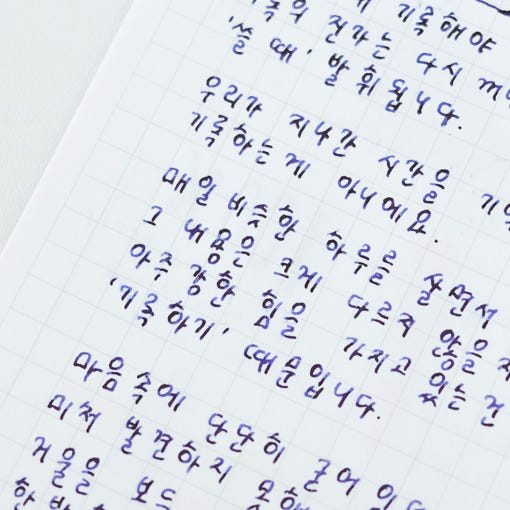 기록해야
진가는 다시
'쓸 때' 발휘됩니다.
우리가 지나간 시간을
기록하는 게 아니에요.
매일 비슷한 하루를 살면서
그 내용은 크게 다르지 않을지
아주 강한 힘을 가지고 있는 건
'기록하기' 때문입니다.
마음 속에 단단히 굳어
미처 발견하지